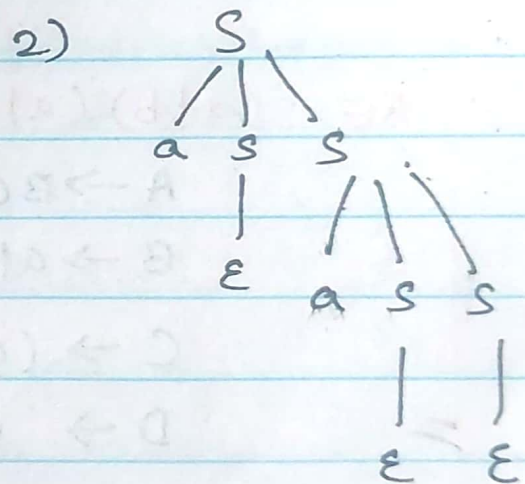 2) S
a S S
ε a S S
ε ε